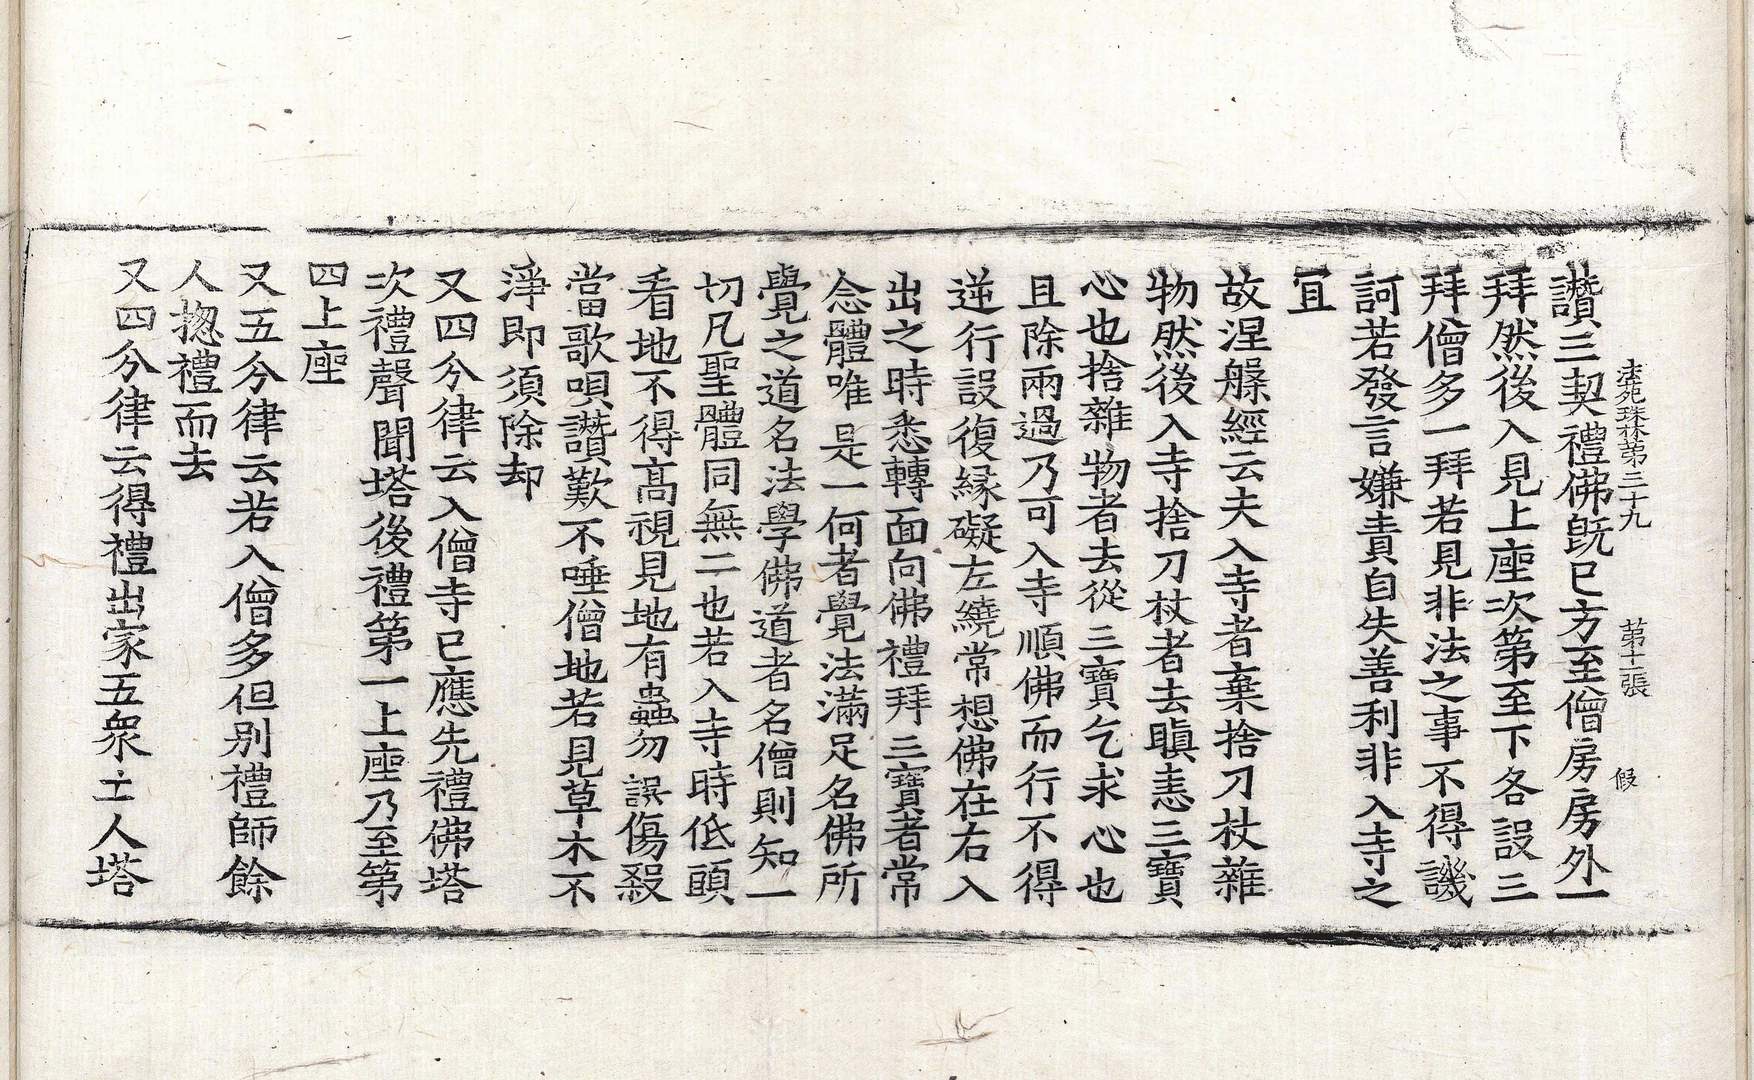 法苑珠林第三十九 第十一張 假
讚三契禮佛旣已方至僧房房外一
拜然後入見上座次第至下各設三
拜僧多一拜若見非法之事不得譏
訶若發言嫌責自失善利非入寺之
冝
故涅槃經云夫入寺者棄捨刀杖雜
物然後入寺捨刀杖者去瞋恚三寶
心也捨雜物者去從三寶乞求心也
且除兩過乃可入寺順佛而行不得
逆行設復緣礙左繞常想佛在右入
出之時悉轉面向佛禮拜三寶者常
念體唯是一何者覺法滿足名佛所
覺之道名法學佛道者名僧則知一
切凡聖體同無二也若入寺時低頭
看地不得高視見地有蟲勿誤傷殺
當歌唄讚歎不唾僧地若見草木不
淨即須除却
又四分律云入僧寺已應先禮佛塔
次禮聲聞塔後禮第一上座乃至第
四上座
又五分律云若入僧多但別禮師餘
人揔禮而去
又四分律云得禮出家五衆士人塔